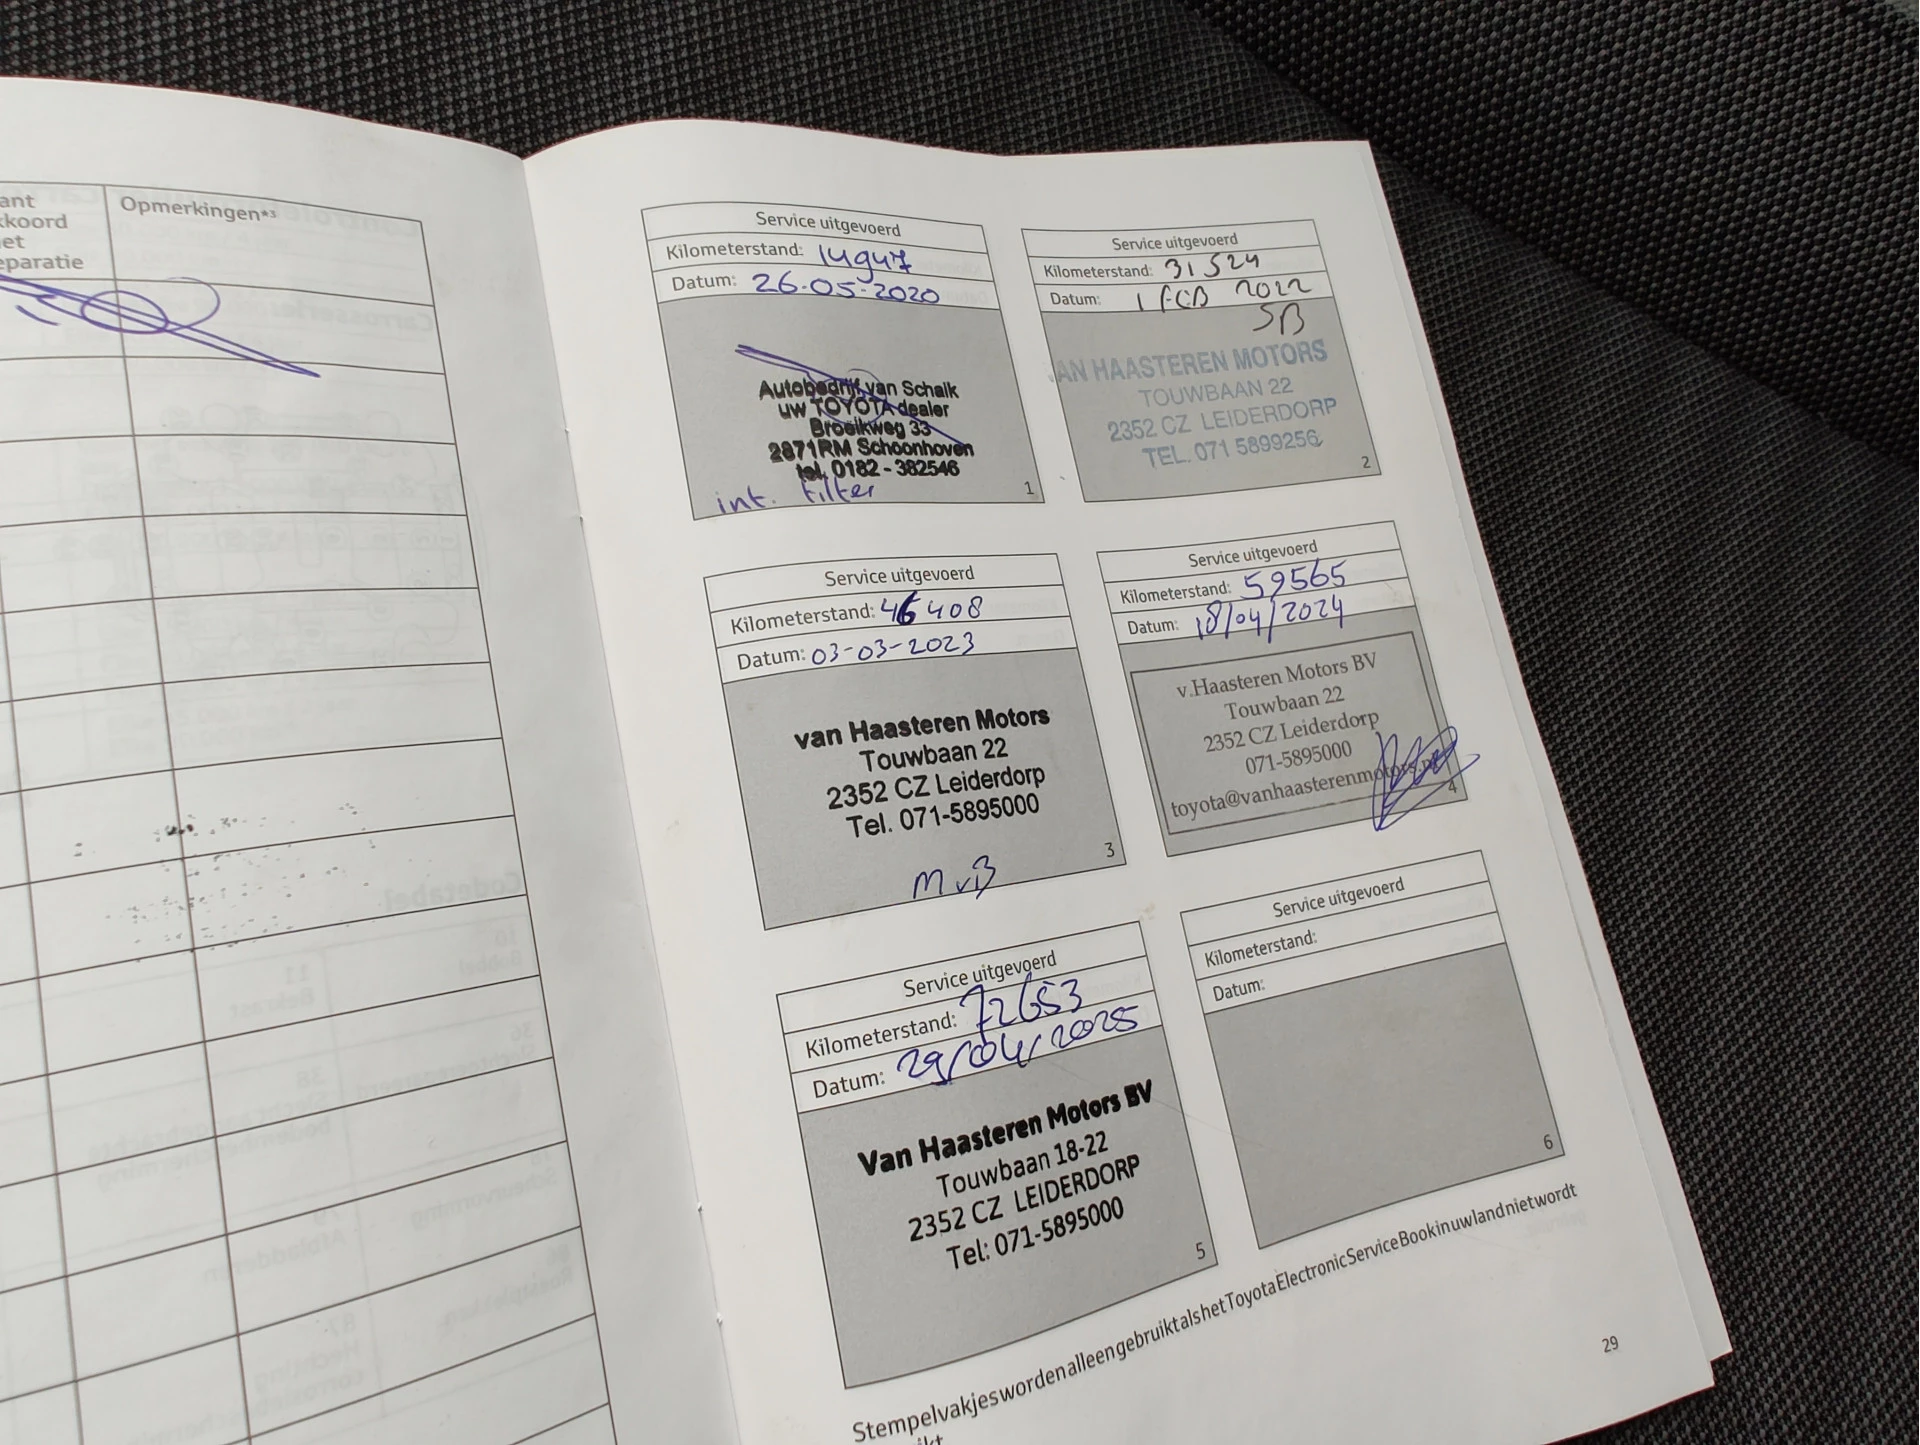 ant
kkoord
et
eparatie
Opmerkingen*³
Service uitgevoerd
Kilometerstand: 14947
Datum: 26-05-2020
Autobedrijf van Schaik
uw TOYOTA dealer
Broeikweg 33
2871RM Schoonhoven
tel. 0182 - 382546
int. filter
1
Service uitgevoerd
Kilometerstand: 31524
Datum: 1 FEB 2022
SB
VAN HAASTEREN MOTORS
TOUWBAAN 22
2352 CZ LEIDERDORP
TEL. 071 5899256
2
Service uitgevoerd
Kilometerstand: 46408
Datum: 03-03-2023
van Haasteren Motors
Touwbaan 22
2352 CZ Leiderdorp
Tel. 071-5895000
MvB
3
Service uitgevoerd
Kilometerstand: 59565
Datum: 18/04/2024
v.Haasteren Motors BV
Touwbaan 22
2352 CZ Leiderdorp
071-5895000
toyota@vanhaasterenmotors.nl
4
Service uitgevoerd
Kilometerstand: 72653
Datum: 29/04/2025
Van Haasteren Motors BV
Touwbaan 18-22
2352 CZ LEIDERDORP
Tel: 071-5895000
5
Service uitgevoerd
Kilometerstand:
Datum:
6
Stempelvakjes worden alleen gebruikt als het Toyota Electronic Service Book in uw land niet wordt
29